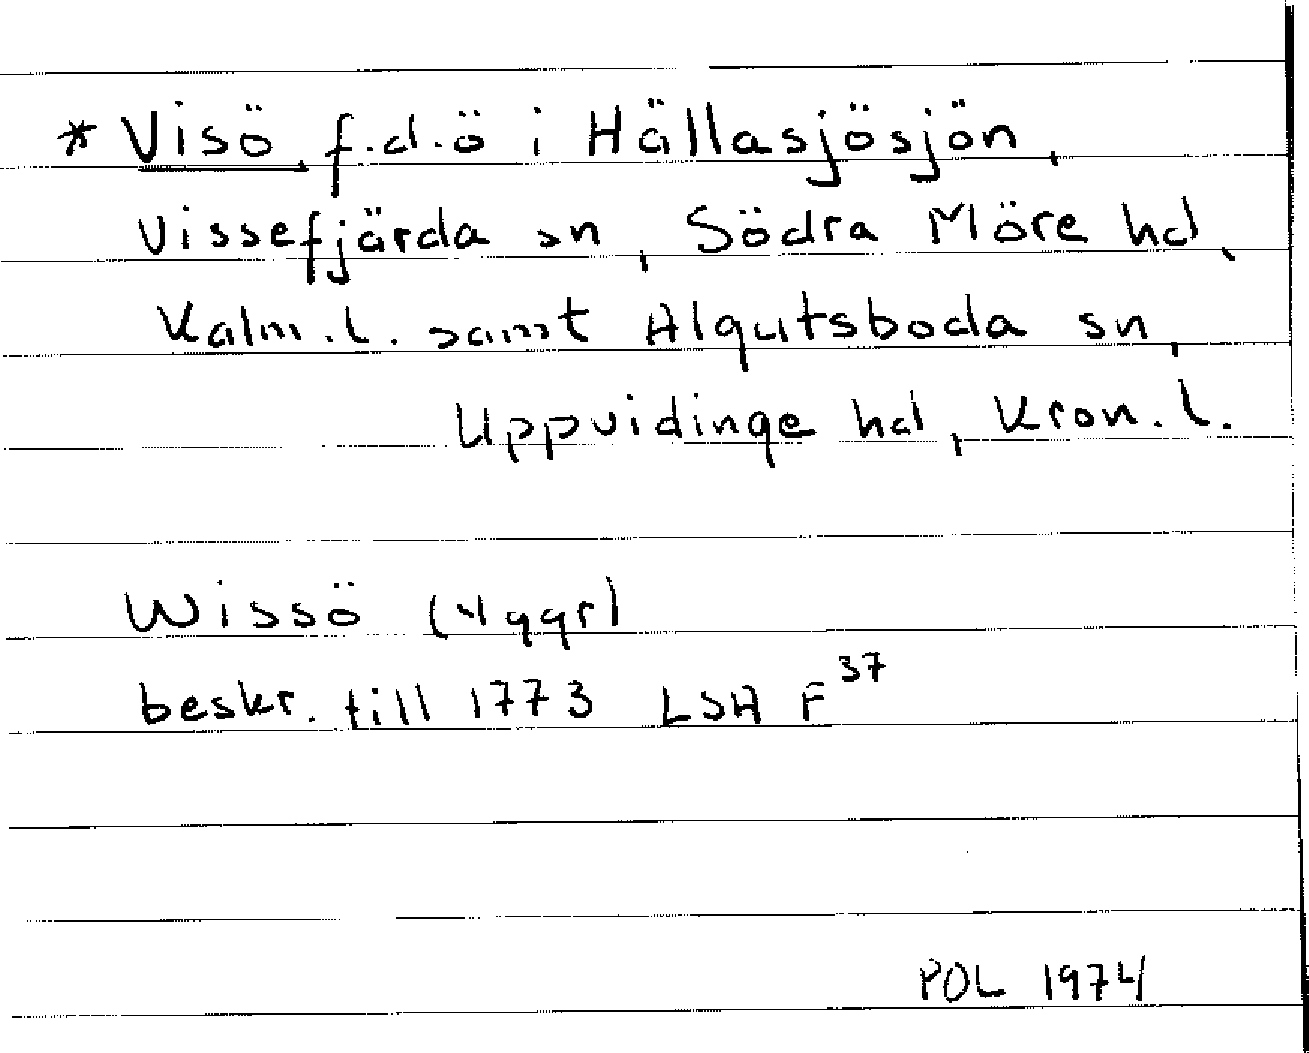 * Visö, f.d.ö i Hällasjösjön,
Vissefjärda sn, Södra Möre hd,
Kalm.l. samt Algutsboda sn,
Uppvidinge hd, Kron.l.
Wissö (Yggr)
beskr. till 1773 LSA F37
POL 1974